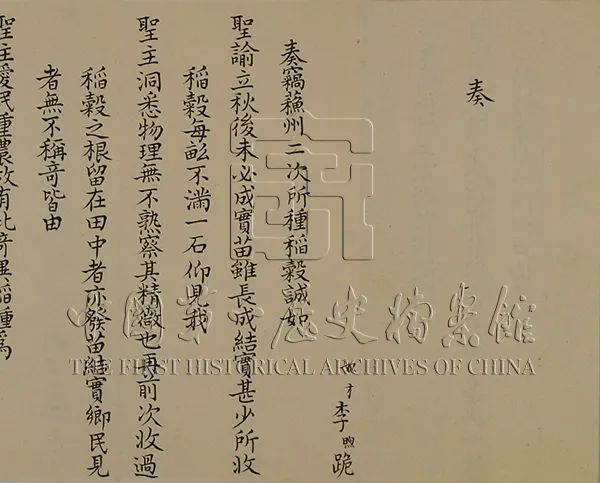 奏
奴才李煦跪
奏竊蘓州二次所種稻穀誠如
聖諭立秋後未必成實苗雖長成結實甚少所收
稻穀每畝不滿一石仰見我
聖主洞悉物理無不熟察其精微也再前次收過
稻穀之根留在田中者亦發苗結實鄉民見
者無不稱竒皆由
聖主愛民重農故有此竒異稻種為
中國第一歷史檔案館
THE FIRST HISTORICAL ARCHIVES OF CHINA